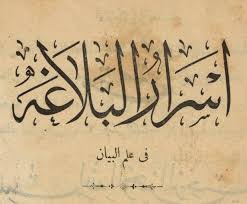 اسرار البلاغة
في علم البيان